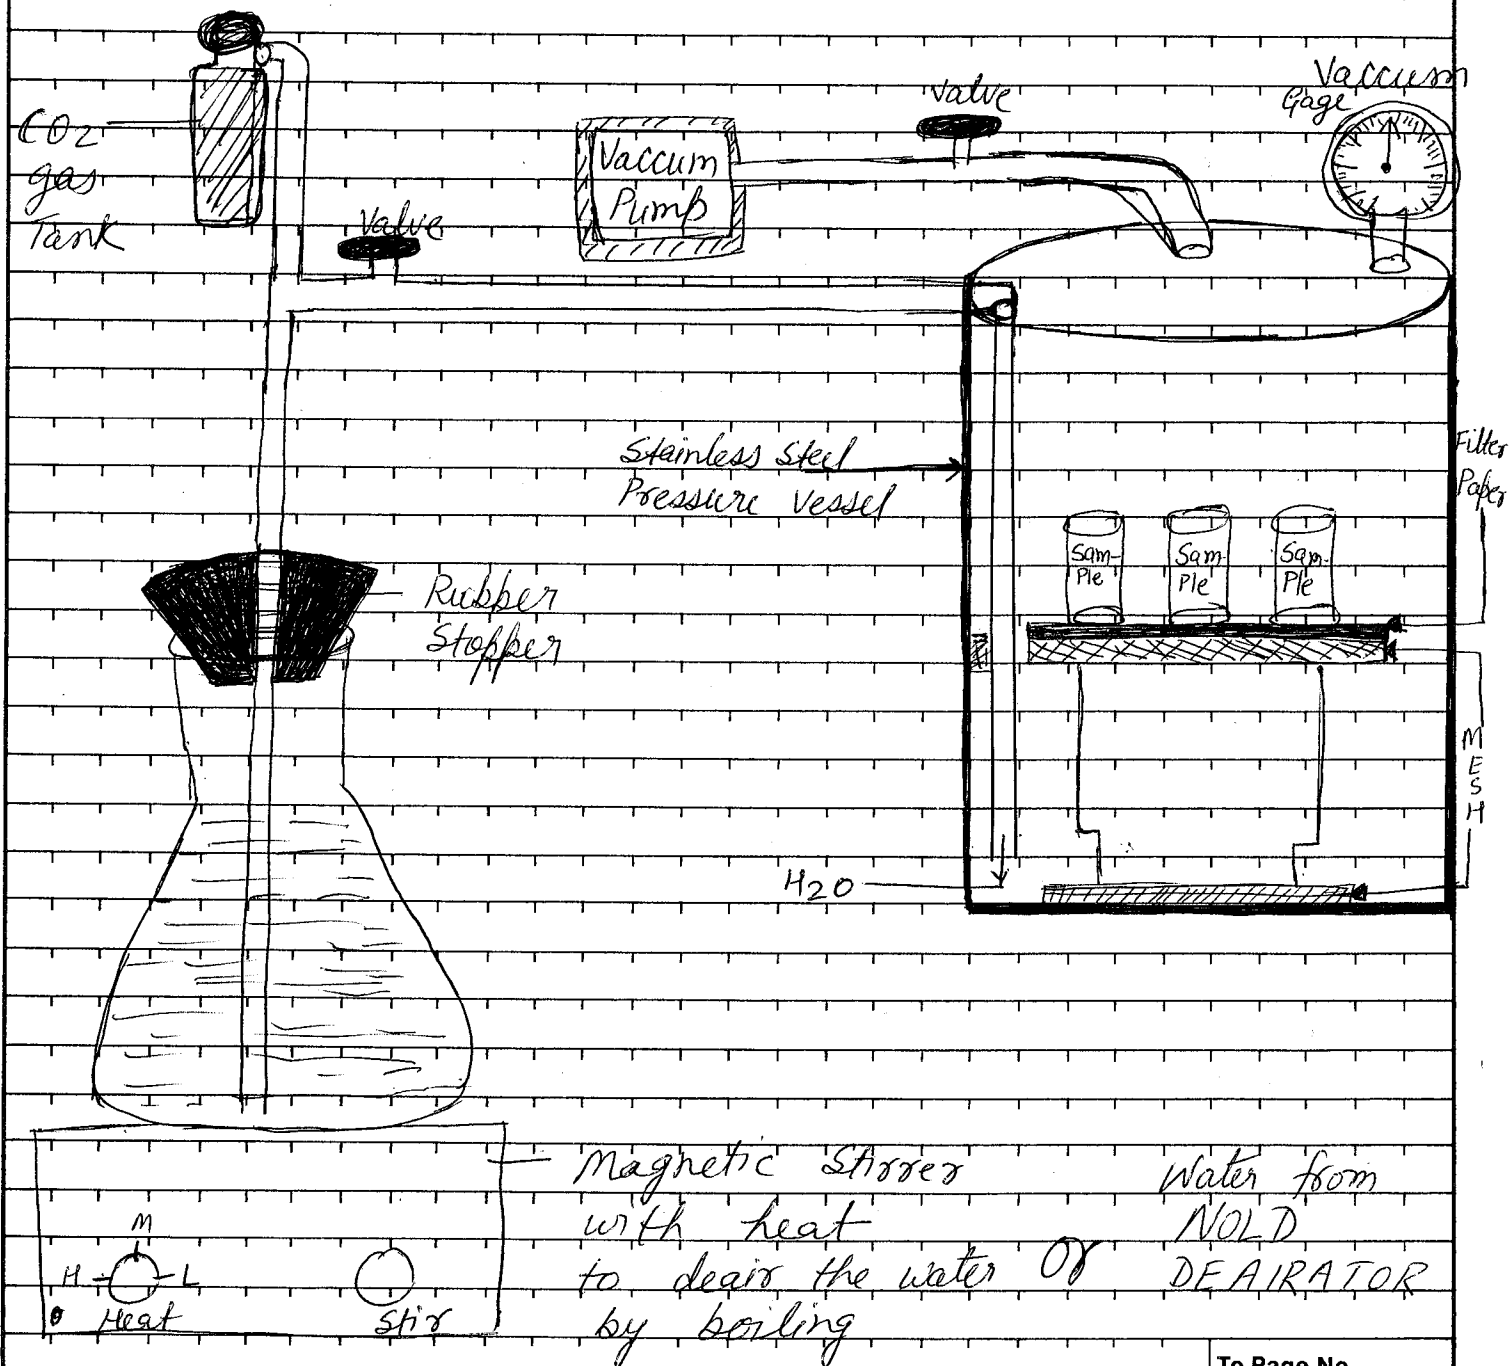 CO2
gas
Tank
Valve
Vaccum
Pump
Valve
Vaccum
Gage
Stainless Steel
Pressure Vessel
Filter
Paper
Sam-
Ple
Sam
Ple
Sam-
Ple
Rubber
Stopper
MESH
H2O
Magnetic Stirrer
with heat
to deair the water
by boiling
or
Water from
NOLD
DEAIRATOR
M
H
L
Heat
Stir
To Page No.